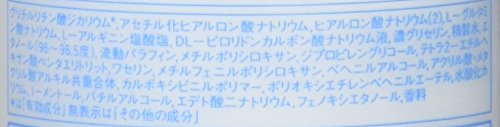 グリチルリチン酸ジカリウム*、アセチル化ヒアルロン酸ナトリウム、ヒアルロン酸ナトリウム(2)、L-グルタミ
ン酸ナトリウム、L-アルギニン塩酸塩、DL-ピロリドンカルボン酸ナトリウム液、濃グリセリン、精製水、エ
タノール(96~96.5度)、流動パラフィン、メチルポリシロキサン、ジプロピレングリコール、テトラ2-エチルヘ
キサン酸ペンタエリトリット、ワセリン、メチルフェニルポリシロキサン、ベヘニルアルコール、アクリル酸・メタ
クリル酸アルキル共重合体、カルボキシビニルポリマー、ポリオキシエチレンベヘニルエーテル、水酸化カ
リウム、l-メントール、バチルアルコール、エデト酸二ナトリウム、フェノキシエタノール、香料
*は「有効成分」 無表示は「その他の成分」